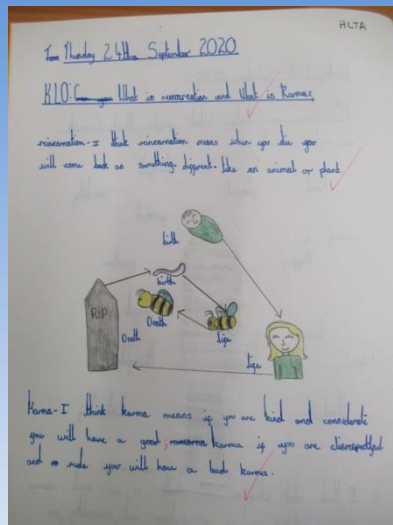 HLTA
Thursday 24th September 2020
KLO: What is reincarnation and What is Karma?
reincarnation - I think reincarnation means when you die you
will come back as something different. Like an animal or plant.
birth
birth
RIP
Death
Death
life
life
Karma - I think karma means if you are kind and considerate
you will have a good karma if you are disrespectful
and rude you will have a bad karma.